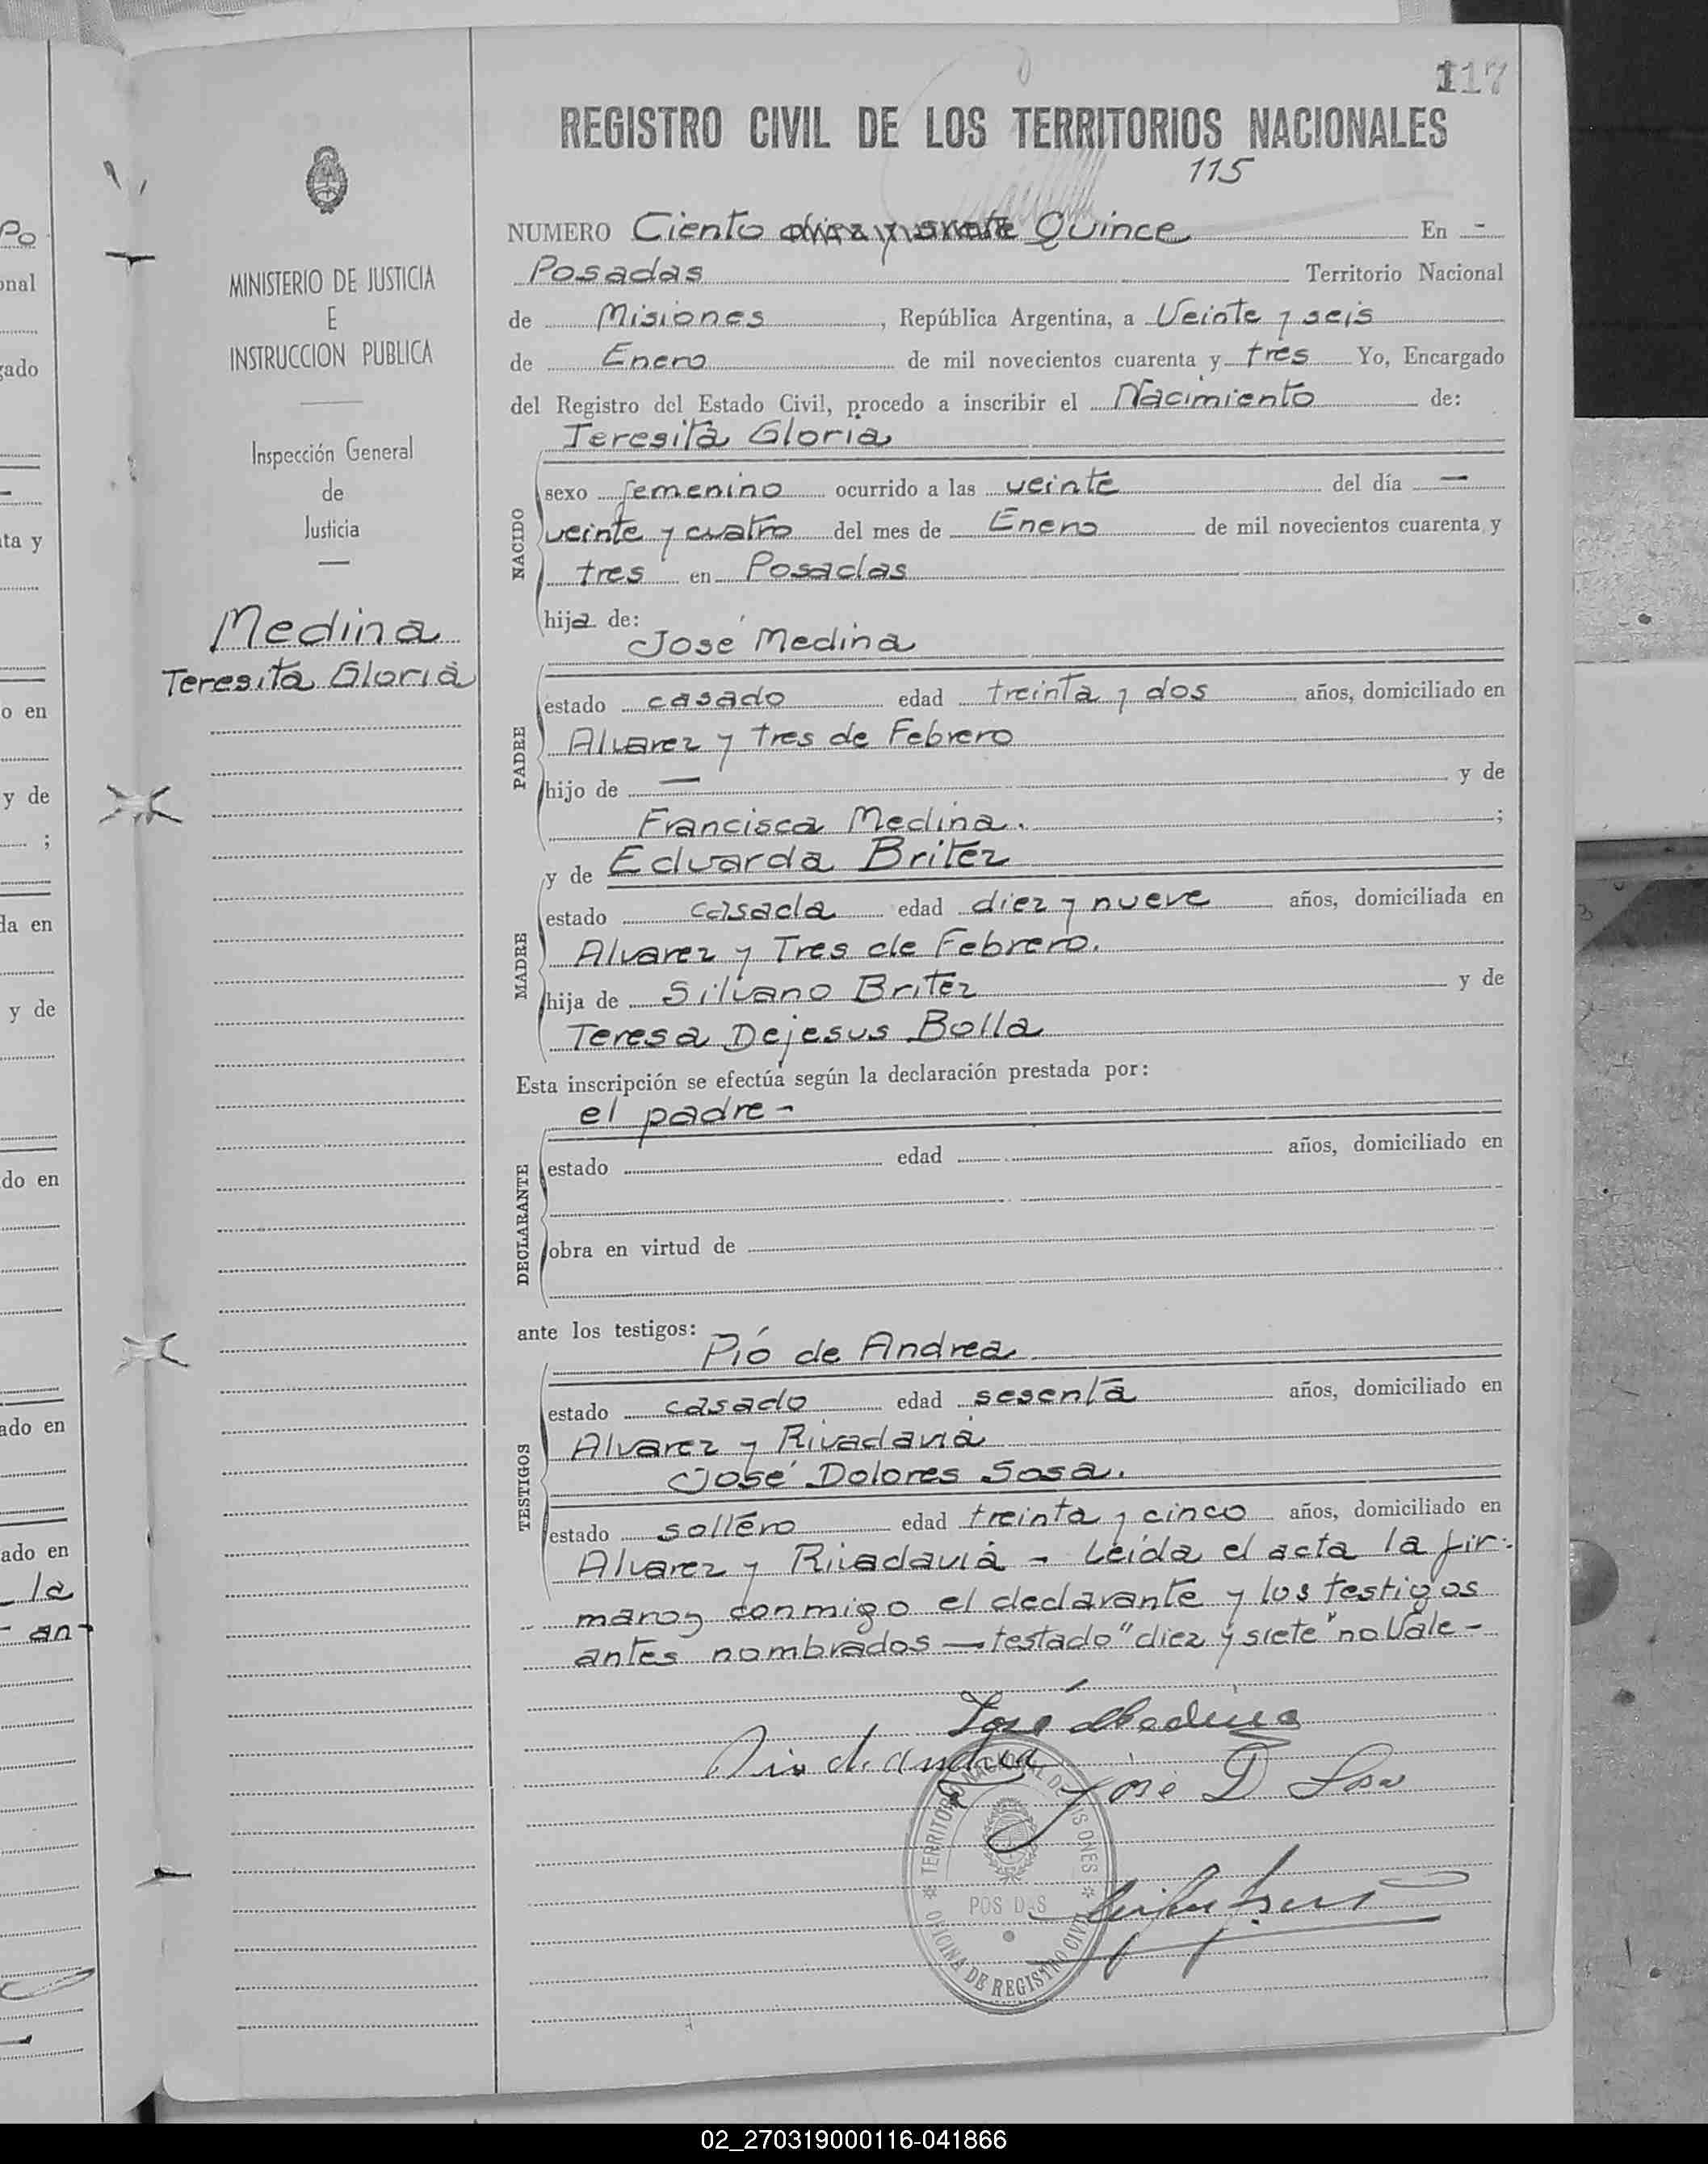 117
REGISTRO CIVIL DE LOS TERRITORIOS NACIONALES
115
MINISTERIO DE JUSTICIA
E
INSTRUCCION PUBLICA
Inspección General
de
Justicia
Medina
Teresita Gloria
NUMERO Ciento diez y siete Quince En -
Posadas Territorio Nacional
de Misiones, República Argentina, a Veinte y seis
de Enero de mil novecientos cuarenta y tres Yo, Encargado
del Registro del Estado Civil, procedo a inscribir el Nacimiento de:
Teresita Gloria
NACIDO
sexo femenino ocurrido a las veinte del día —
veinte y cuatro del mes de Enero de mil novecientos cuarenta y
tres en Posadas
hija de:
José Medina
PADRE
estado casado edad treinta y dos años, domiciliado en
Alvarez y tres de Febrero
hijo de — y de
Francisca Medina. ;
y de Eduarda Britez
MADRE
estado casada edad diez y nueve años, domiciliada en
Alvarez y Tres de Febrero.
hija de Silvano Britez y de
Teresa Dejesus Bolla
Esta inscripción se efectúa según la declaración prestada por:
el padre -
DECLARANTE
estado edad años, domiciliado en
obra en virtud de
ante los testigos:
Pió de Andrea
TESTIGOS
estado casado edad sesenta años, domiciliado en
Alvarez y Rivadavia
José Dolores Sosa.
estado soltero edad treinta y cinco años, domiciliado en
Alvarez y Rivadavia - Leída el acta la fir-
maron conmigo el declarante y los testigos
antes nombrados — testado "diez y siete" no Vale -
José Medina
Pio de Andrea
José D Sosa
TERRITORIO NACIONAL DE MISIONES
POSADAS
OFICINA DE REGISTRO CIVIL
Po
onal
gado
nta y
o en
y de
;
da en
y de
do en
ado en
ado en
la
- an-
02_270319000116-041866